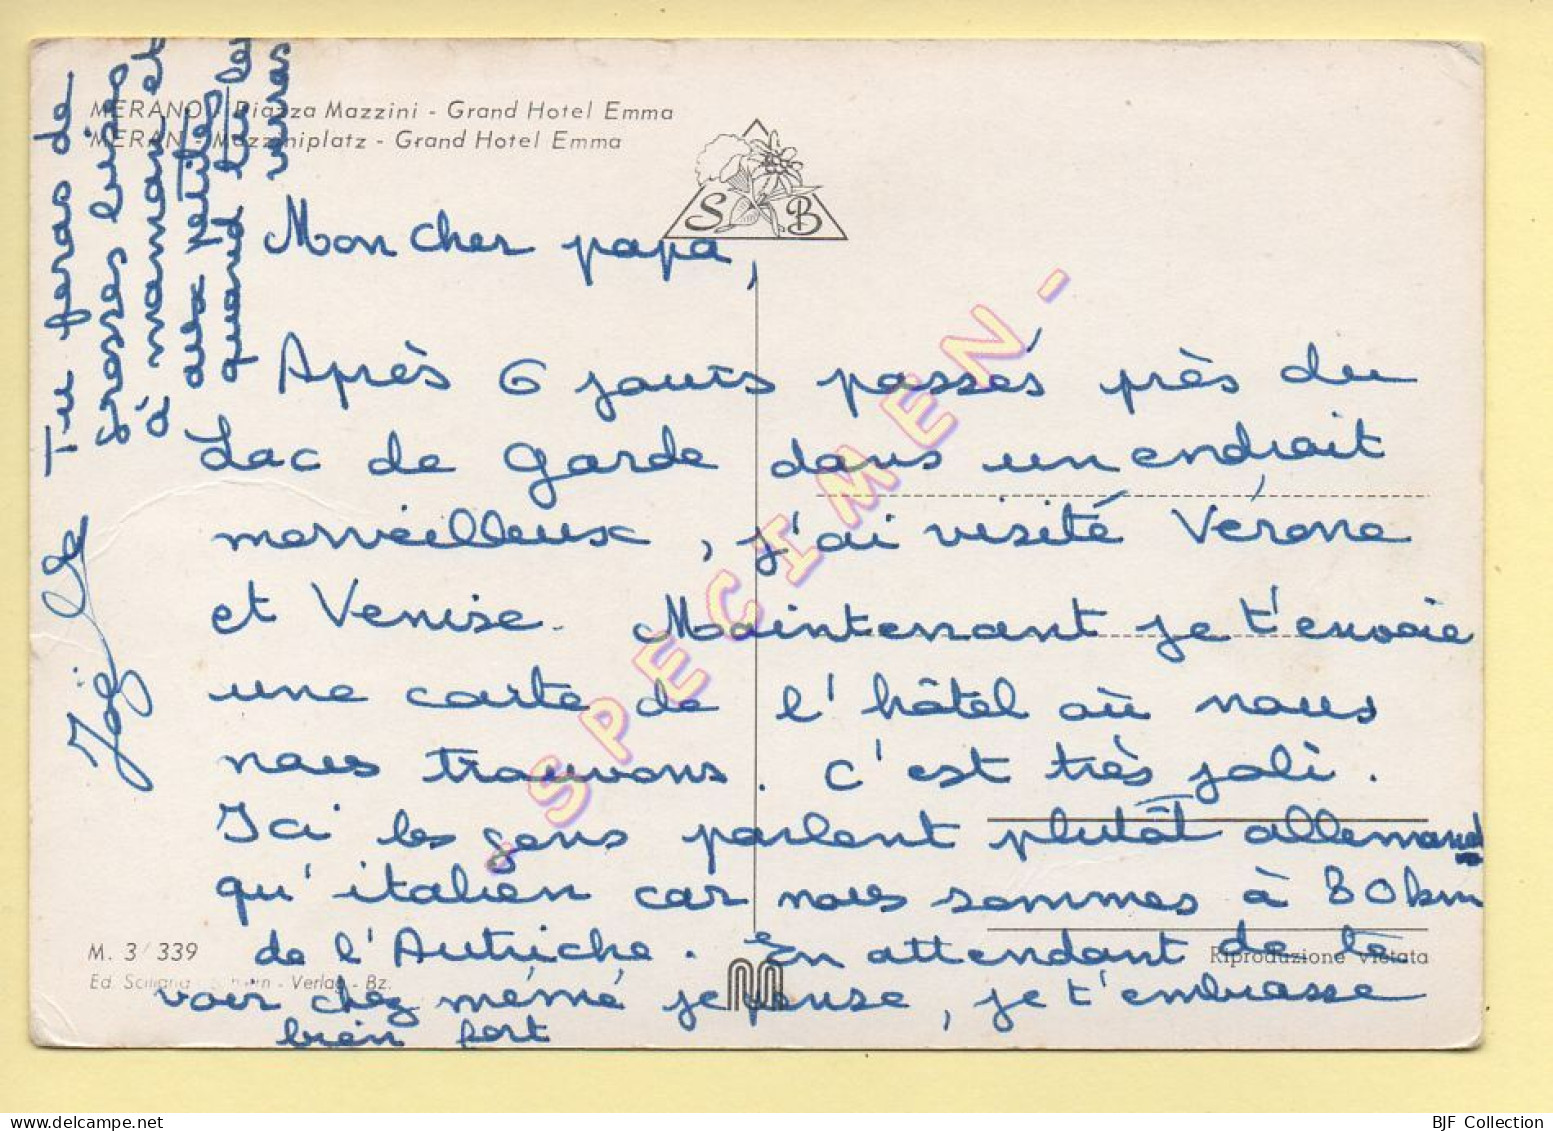 MERANO - Piazza Mazzini - Grand Hotel Emma
MERAN - Mazziniplatz - Grand Hotel Emma
S B
Mon cher papa,
Après 6 jours passés près du
Lac de Garde dans un endroit
merveilleux, j'ai visité Vérone
et Venise. Maintenant je t'envoie
une carte de l'hôtel où nous
nous trouvons. C'est très joli.
Ici les gens parlent plutôt allemand
qu'italien car nous sommes à 80 km
de l'Autriche. En attendant de te
voir chez mémé je pense, je t'embrasse
bien fort
Joëlle
Tu feras de
grosses bises
à maman et
aux petites
quand tu les
verras
M. 3/339
Ed. - Verlag - Bz.
Riproduzione vietata
- SPECIMEN -
BJF Collection